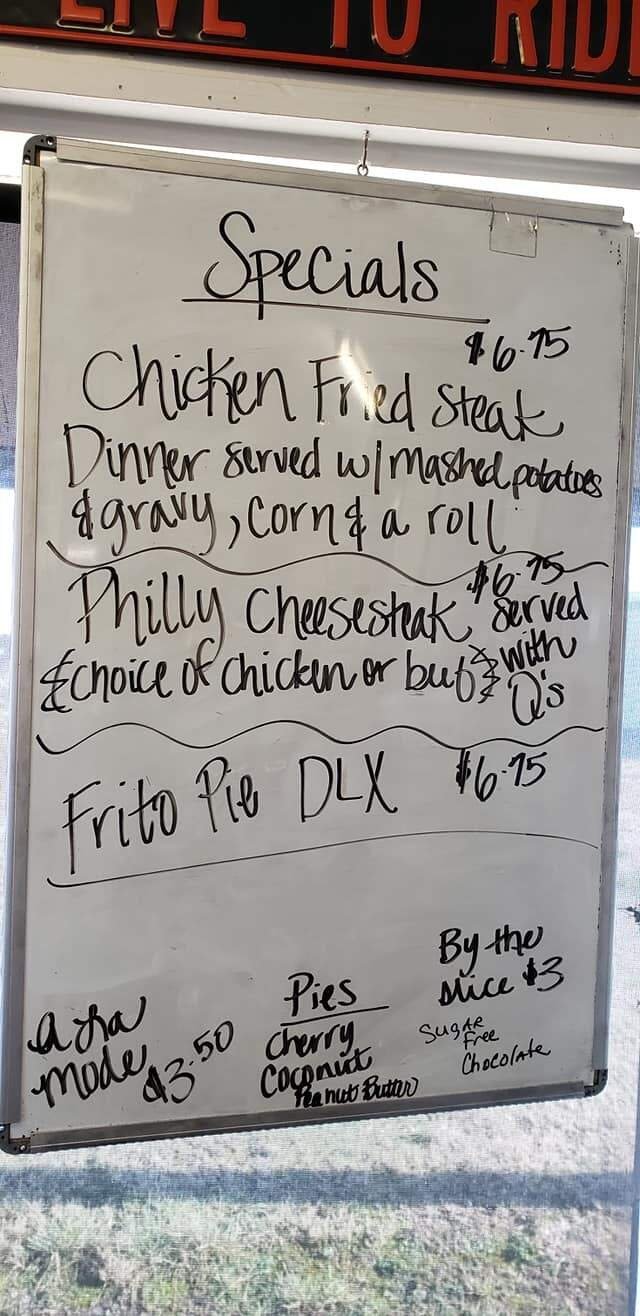 LIVE TO RIDE
Specials
$6.75
Chicken Fried Steak
Dinner served w/ mashed potatoes
& gravy, corn & a roll
$6.75
Philly Cheesesteak served
& choice of chicken or beef with
Q's
Frito Pie DLX $6.75
By the
Slice $3
Pies
a la
mode $3.50
Cherry
Coconut
Peanut Butter
Sugar
Free
Chocolate